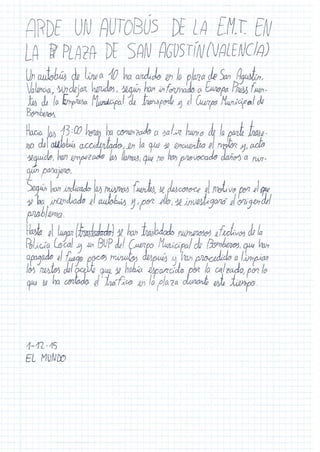 ARDE UN AUTOBÚS DE LA E.M.T. EN
LA PLAZA DE SAN AGUSTÍN (VALENCIA)
Un autobús de línea 10 ha ardido en la plaza de San Agustín,
Valencia, sin dejar heridos, según han informado a Europa Press fuen-
tes de la Empresa Municipal de transporte y el Cuerpo Municipal de
Bomberos.
Hacia las 13:00 horas ha comenzado a salir humo de la parte trase-
ra del autobús accidentado, en la que se encuentra el motor y, acto
seguido, han empezado las llamas, que no han provocado daños a nin-
gún pasajero.
Según han indicado las mismas fuentes, se desconoce el motivo por el que
se ha incendiado el autobús y, por ello, se investigará el origen del
problema.
Hasta el lugar (trasladado) se han trasladado numerosos efectivos de la
Policía Local y un BUP del Cuerpo Municipal de Bomberos, que han
apagado el fuego pocos minutos después y han procedido a limpiar
los restos del aceite que se había esparcido por la calzada, por lo
que se ha cortado el tráfico en la plaza durante este tiempo.
1-12-15
EL MUNDO